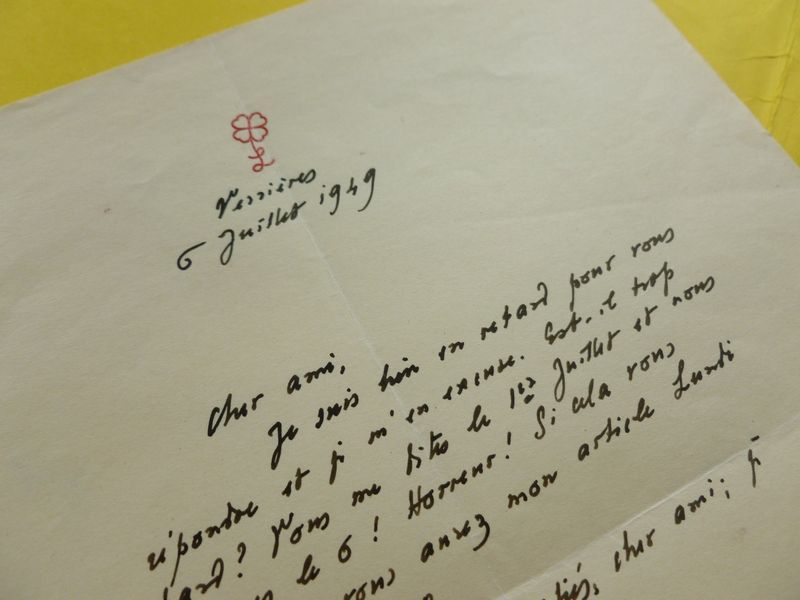 L
Verrières
6 Juillet 1949
Cher ami,
Je suis bien en retard pour vous
répondre et je m'en excuse. Est-il trop
tard? Vous me dites le 1er Juillet et nous
le 6! Horreur! Si cela vous
vous aurez mon article Lundi
cher ami; je